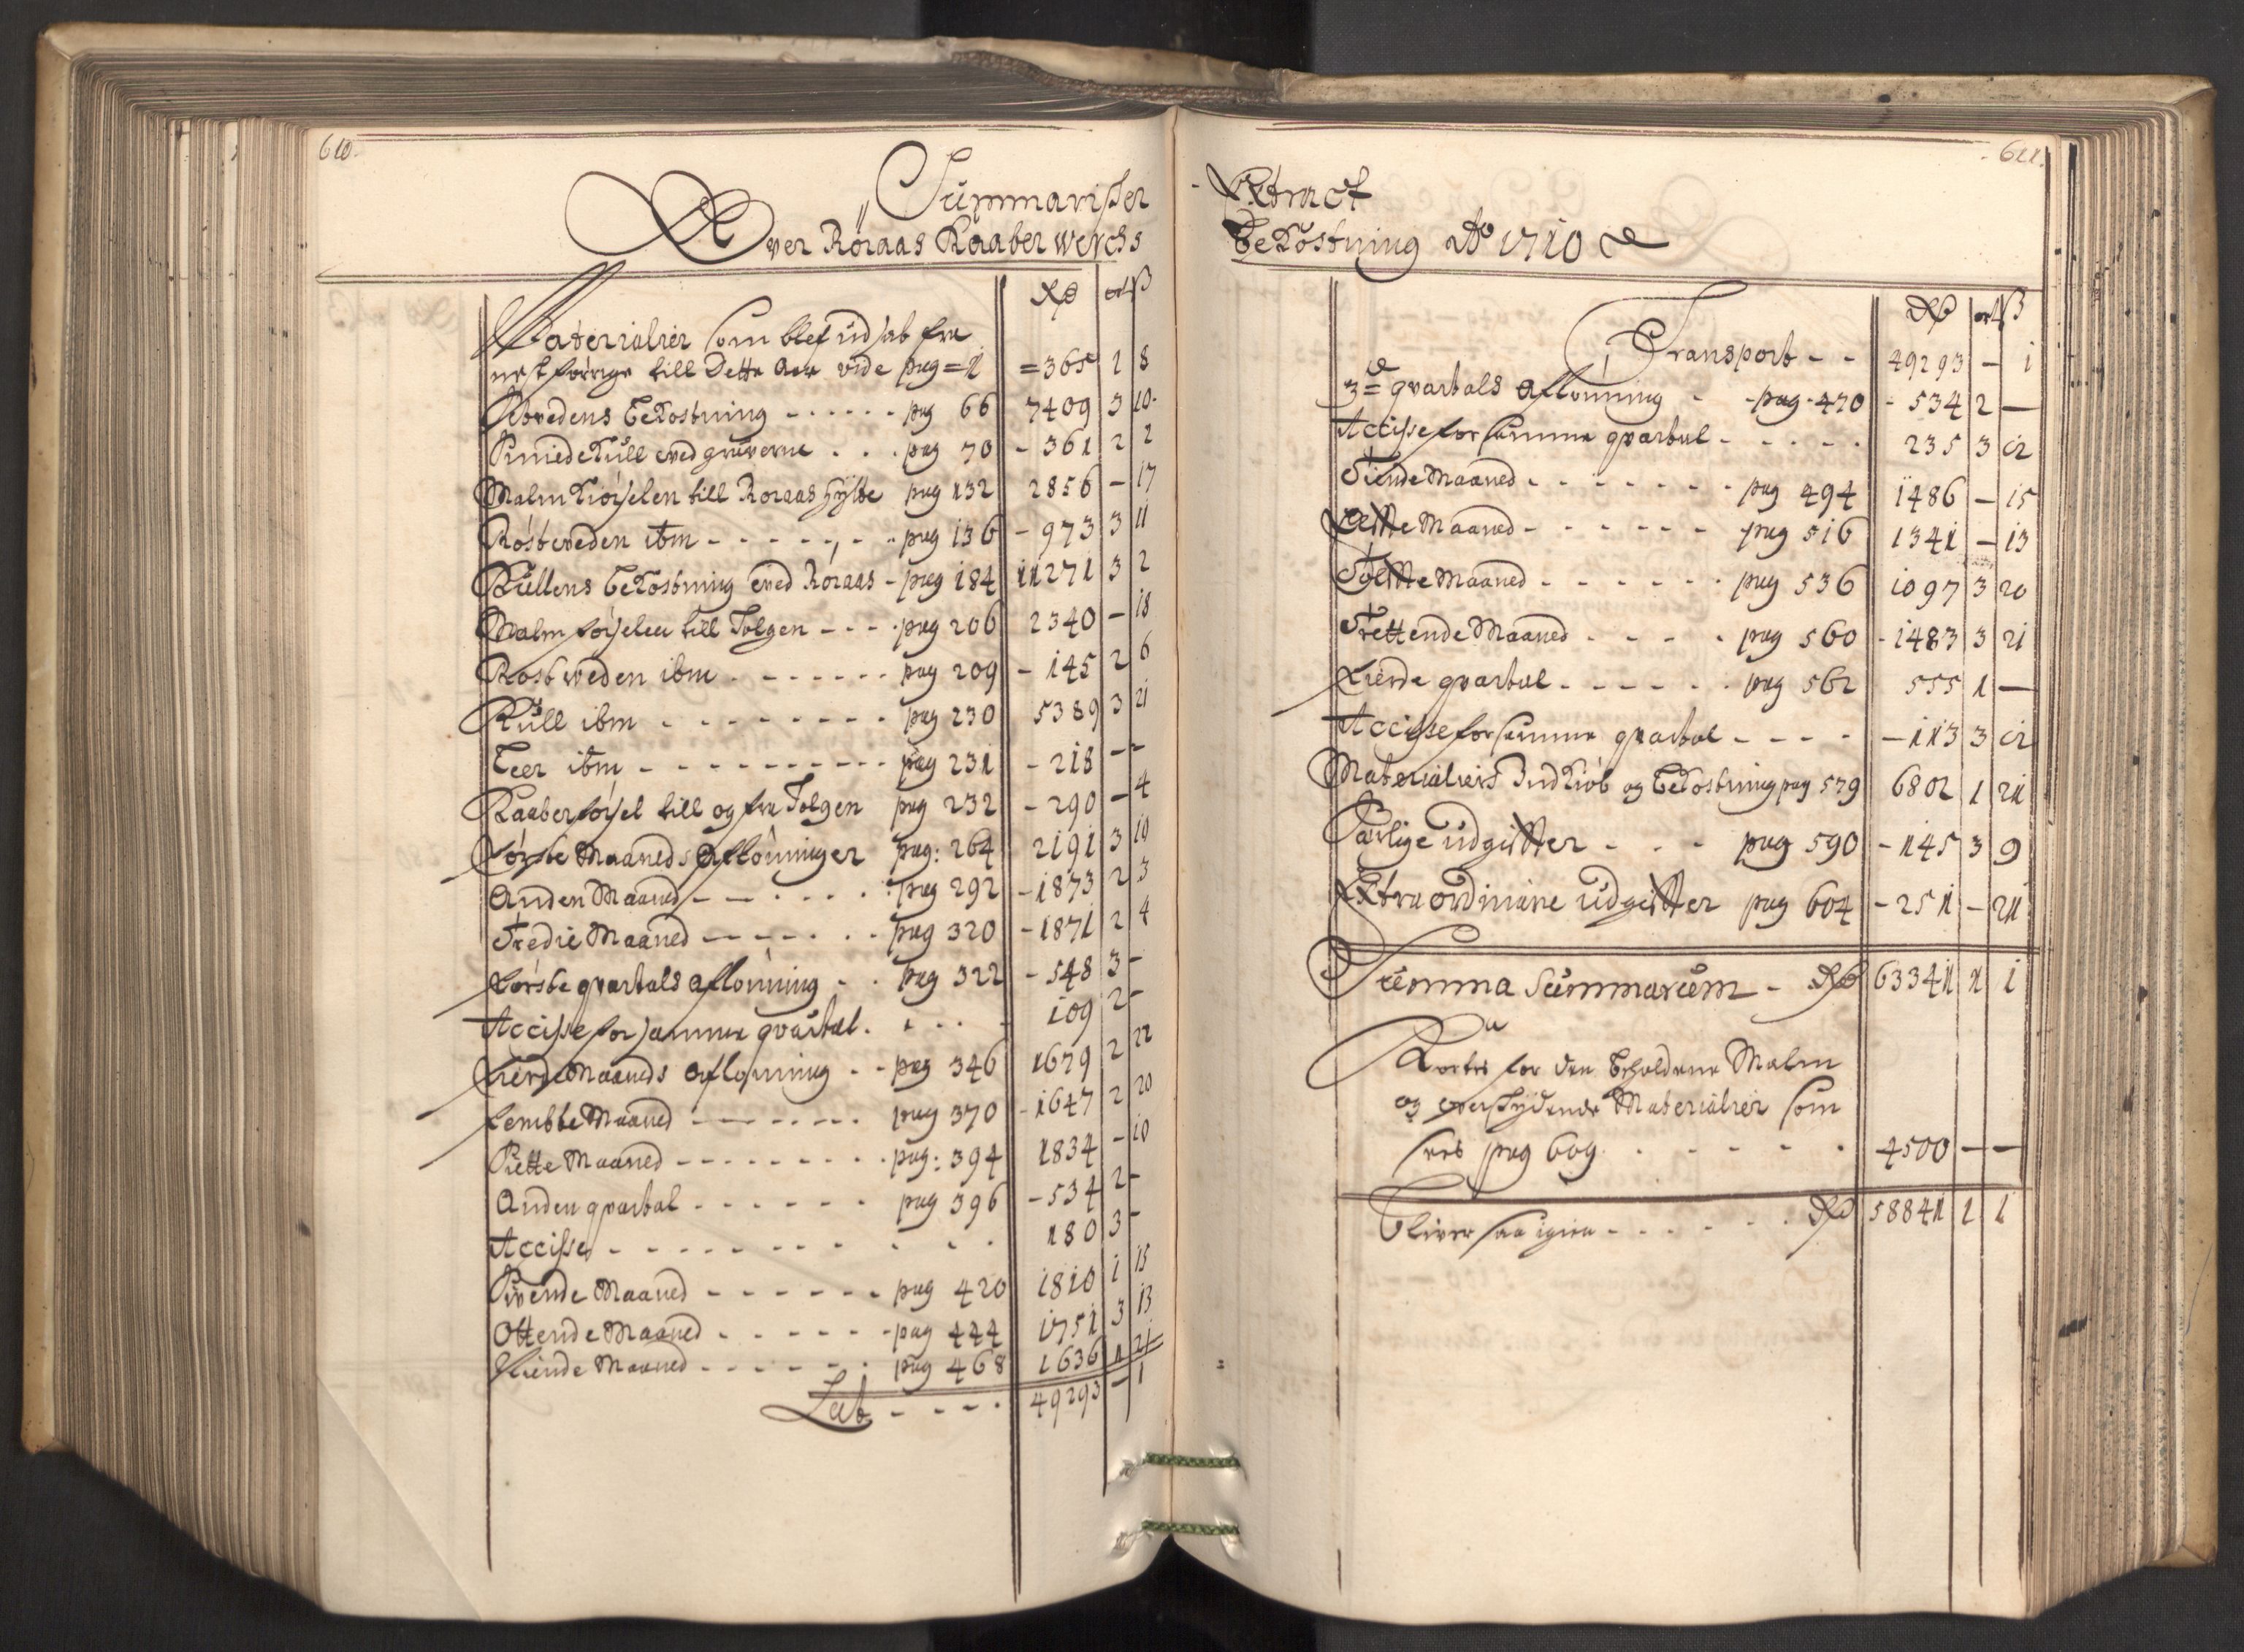 610.
Summarisker
Over Röraas Kaaber Werchs
Rd ort ß
Materialier som blef udsat fra
nest forrige till Dette Aar vide pag = 1 = 365 1 8
Setvedens Bekostning - - - - - - pag 66 7409 3 10.
Smiedekull ved gruverne . . . pag 70 - 361 2 2
Malm Kiörselen till Roraas hytte pag 132 2856 - 17
Röstveden ibm - - - - - - - pag 136 - 973 3 11
Kullens Bekostning ved Röraas - pag 184 11271 3 2
Malm förselen till Tolgen - - - pag 206 2340 - 18
Rostveden ibm - - - - - - - pag 209 - 145 2 6
Kull ibm - - - - - - - - - pag 230 5389 3 21
Leer ibm - - - - - - - - - - pag 231 - 218 - -
Kaaber förssel till og fra Tolgen pag 232 - 290 - 4
Förste Maaneds Aflönninger pag: 264 2191 3 10
Anden Maaned - - - - - - pag 292 - 1873 2 3
Tredie Maaned - - - - - - pag 320 - 1871 2 4
Förste qvartals Aflönning - - pag 322 - 548 3 -
Accisse for samme qvartal. - - - - 109 2 -
Fierde Maaneds Aflönning - - pag 346 1679 2 22
Fembte Maaned - - - - - - - pag 370 - 1647 2 20
Siette Maaned - - - - - - - - - pag: 394 1834 - 10
Anden qvartal - - - - - - pag 396 - 534 2 -
Accisse - - - - - - - - - - - 180 3 -
Sivende Maaned - - - - - - pag 420 1810 1 15
Ottende Maaned - - - - - - pag 444 1751 3 13
Niende Maaned - - - - - - pag 468 1636 1 21
Lat - - - - 49293 - 1
611.
Extract
Bekostning Ao 1710
Rd ort ß
Transport - - 49293 - 1
3de qvartals Aflönning - - pag. 470 - 534 2 -
Accisse for samme qvartal - - - - - 235 3 12
Tiende Maaned - - - - - - - pag 494 1486 - 15
Elffte Maaned - - - - - - pag 516 1341 - 13
Tolffte Maaned - - - - - - pag 536 1097 3 20
Trettende Maaned - - - - pag 560 - 1483 3 21
Fierde qvartal - - - - - - pag 562 555 1 -
Accisse for samme qvartal - - - - - 113 3 12
Materialiers Indkiöb og Bekostning pag 579 6802 1 21
Aarlige udgiffter - - - pag 590 - 145 3 9
Extra ordinaire udgiffter pag 604 - 251 - 21
Summa Summarum - Rd 63341 1 1
Kortes for den beholdene Malm
og overskydende Materialier som
sees pag 609 - - - - - - 4500 - -
Bliver saa igien - - - - - - Rd 58841 1 1